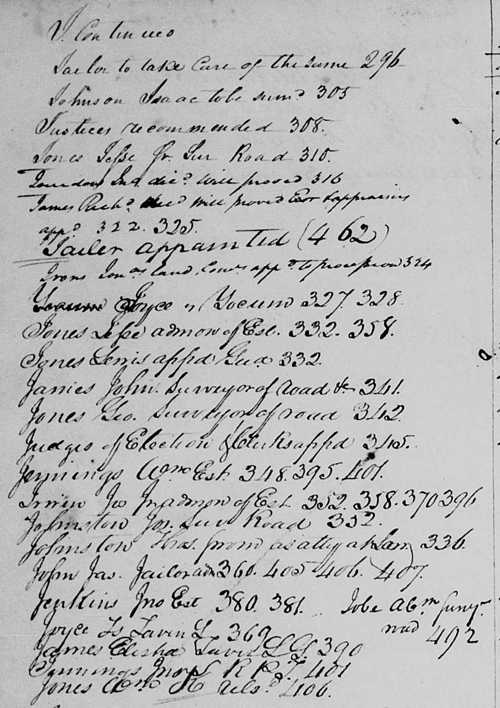 J. Continued
Jailor to take Care of the same 296
Johnson Isaac to be sumd 305
Justices recommended 308.
Jones Jesse Jr. Sur Road 310.
decd. Will proved 316
James decd Will proved Exr & appraisers
appd. 322. 325.
Jailer appointed (462)
Irons land, Comrs appd to procession 324
Joyce vs Yocum 327. 328.
Jones Jesse admon of Est. 332. 358.
Jones Lewis appd Gud. 332.
James John. Surveyor of road &c 341.
Jones Geo. Surveyor of road 342.
Judges of Election & Clerks appd 345.
Jennings Wm Est. 348. 395. 401.
Irwin Jos admon of Est 352. 358. 370 396
Johnston Jos. Sur Road 352.
Johnston Thos. prod as atty at Law 336.
John Jas. Jailor 360. 405 406. 407.
Jenkins Jno Est 380. 381. Jobe Abm Survr.
Joyce Tavern L. 369 road 492
James Elisha Tavern L G 390
Jennings 401
Jones Wm 406.